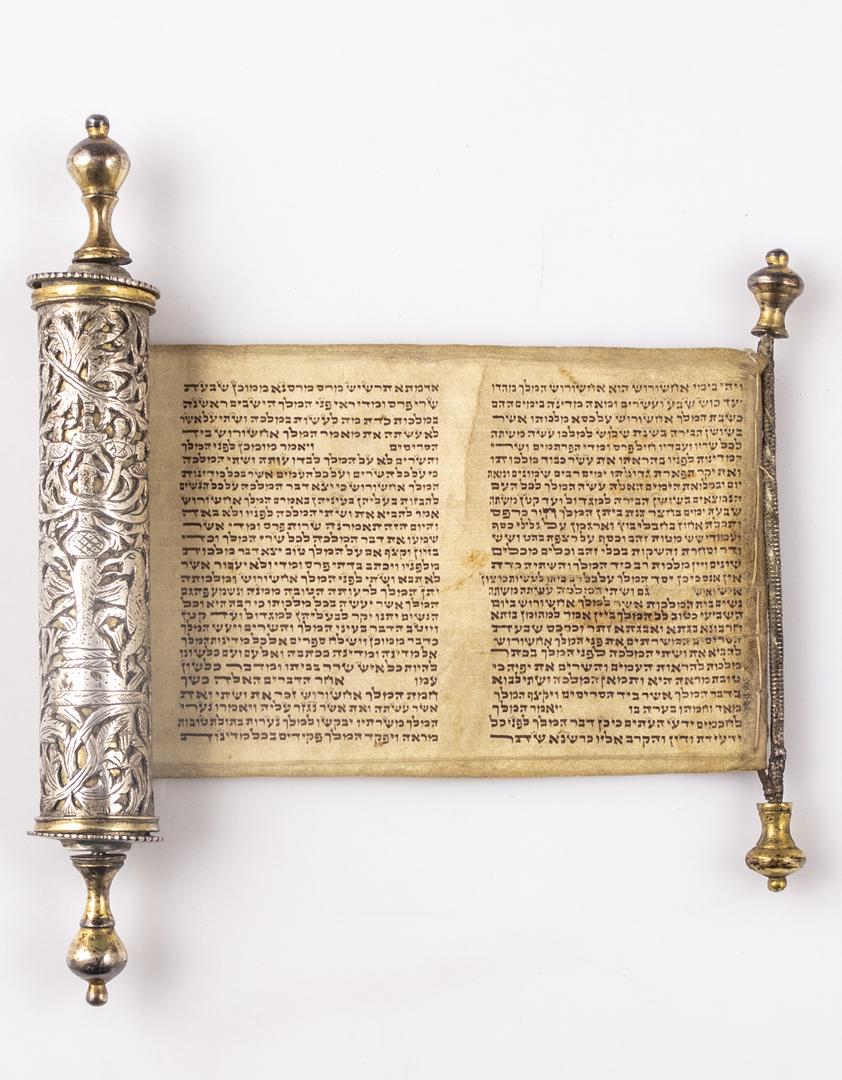 ויהי בימי אחשורוש הוא אחשורוש המלך מהדו
ועד כוש שבע ועשרים ומאה מדינה בימים ההם
כשבת המלך אחשורוש על כסא מלכותו אשר
בשושן הבירה בשנת שלוש למלכו עשה משתה
לכל שריו ועבדיו חיל פרס ומדי הפרתמים ושרי
המדינות לפניו בהראתו את עשר כבוד מלכותו
ואת יקר תפארת גדולתו ימים רבים שמונים ומאת
יום ובמלואת הימים האלה עשה המלך לכל העם
הנמצאים בשושן הבירה למגדול ועד קטן משתה
שבעת ימים בחצר גנת ביתן המלך חור כרפס
ותכלת אחוז בחבלי בוץ וארגמן על גלילי כסף
ועמודי שש מטות זהב וכסף על רצפת בהט ושש
ודר וסחרת והשקות בכלי זהב וכלים מכלים
שונים ויין מלכות רב כיד המלך והשתיה כדת
אין אנס כי כן יסד המלך על כל רב ביתו לעשות כרצון
איש ואיש גם ושתי המלכה עשתה משתה
נשים בית המלכות אשר למלך אחשורוש ביום
השביעי כטוב לב המלך ביין אמר למהומן בזתא
חרבונא בגתא ואבגתא זתר וכרכס שבעת
הסריסים המשרתים את פני המלך אחשורוש
להביא את ושתי המלכה לפני המלך בכתר
מלכות להראות העמים והשרים את יפיה כי
טובת מראה היא ותמאן המלכה ושתי לבוא
בדבר המלך אשר ביד הסריסים ויקצף המלך
מאד וחמתו בערה בו ויאמר המלך
לחכמים ידעי העתים כי כן דבר המלך לפני כל
ידעי דת ודין והקרב אליו כרשנא שתר
אדמתא תרשיש מרס מרסנא ממוכן שבעת
שרי פרס ומדי ראי פני המלך הישבים ראשנה
במלכות כדת מה לעשות במלכה ושתי על אשר
לא עשתה את מאמר המלך אחשורוש ביד
הסריסים ויאמר מומכן לפני המלך
והשרים לא על המלך לבדו עותה ושתי המלכה
כי על כל השרים ועל כל העמים אשר בכל מדינות
המלך אחשורוש כי יצא דבר המלכה על כל הנשים
להבזות בעליהן בעיניהן באמרם המלך אחשורוש
אמר להביא את ושתי המלכה לפניו ולא באה
והיום הזה תאמרנה שרות פרס ומדי אשר
שמעו את דבר המלכה לכל שרי המלך וכדי
בזיון וקצף אם על המלך טוב יצא דבר מלכות
מלפניו ויכתב בדתי פרס ומדי ולא יעבור אשר
לא תבוא ושתי לפני המלך אחשורוש ומלכותה
יתן המלך לרעותה הטובה ממנה ונשמע פתגם
המלך אשר יעשה בכל מלכותו כי רבה היא וכל
הנשים יתנו יקר לבעליהן למגדול ועד קטן
וייטב הדבר בעיני המלך והשרים ויעש המלך
כדבר ממוכן וישלח ספרים אל כל מדינות המלך
אל מדינה ומדינה ככתבה ואל עם ועם כלשונו
להיות כל איש שרר בביתו ומדבר כלשון
עמו אחר הדברים האלה כשך
חמת המלך אחשורוש זכר את ושתי ואת
אשר עשתה ואת אשר נגזר עליה ויאמרו נערי
המלך משרתיו יבקשו למלך נערות בתולות טובות
מראה ויפקד המלך פקידים בכל מדינות